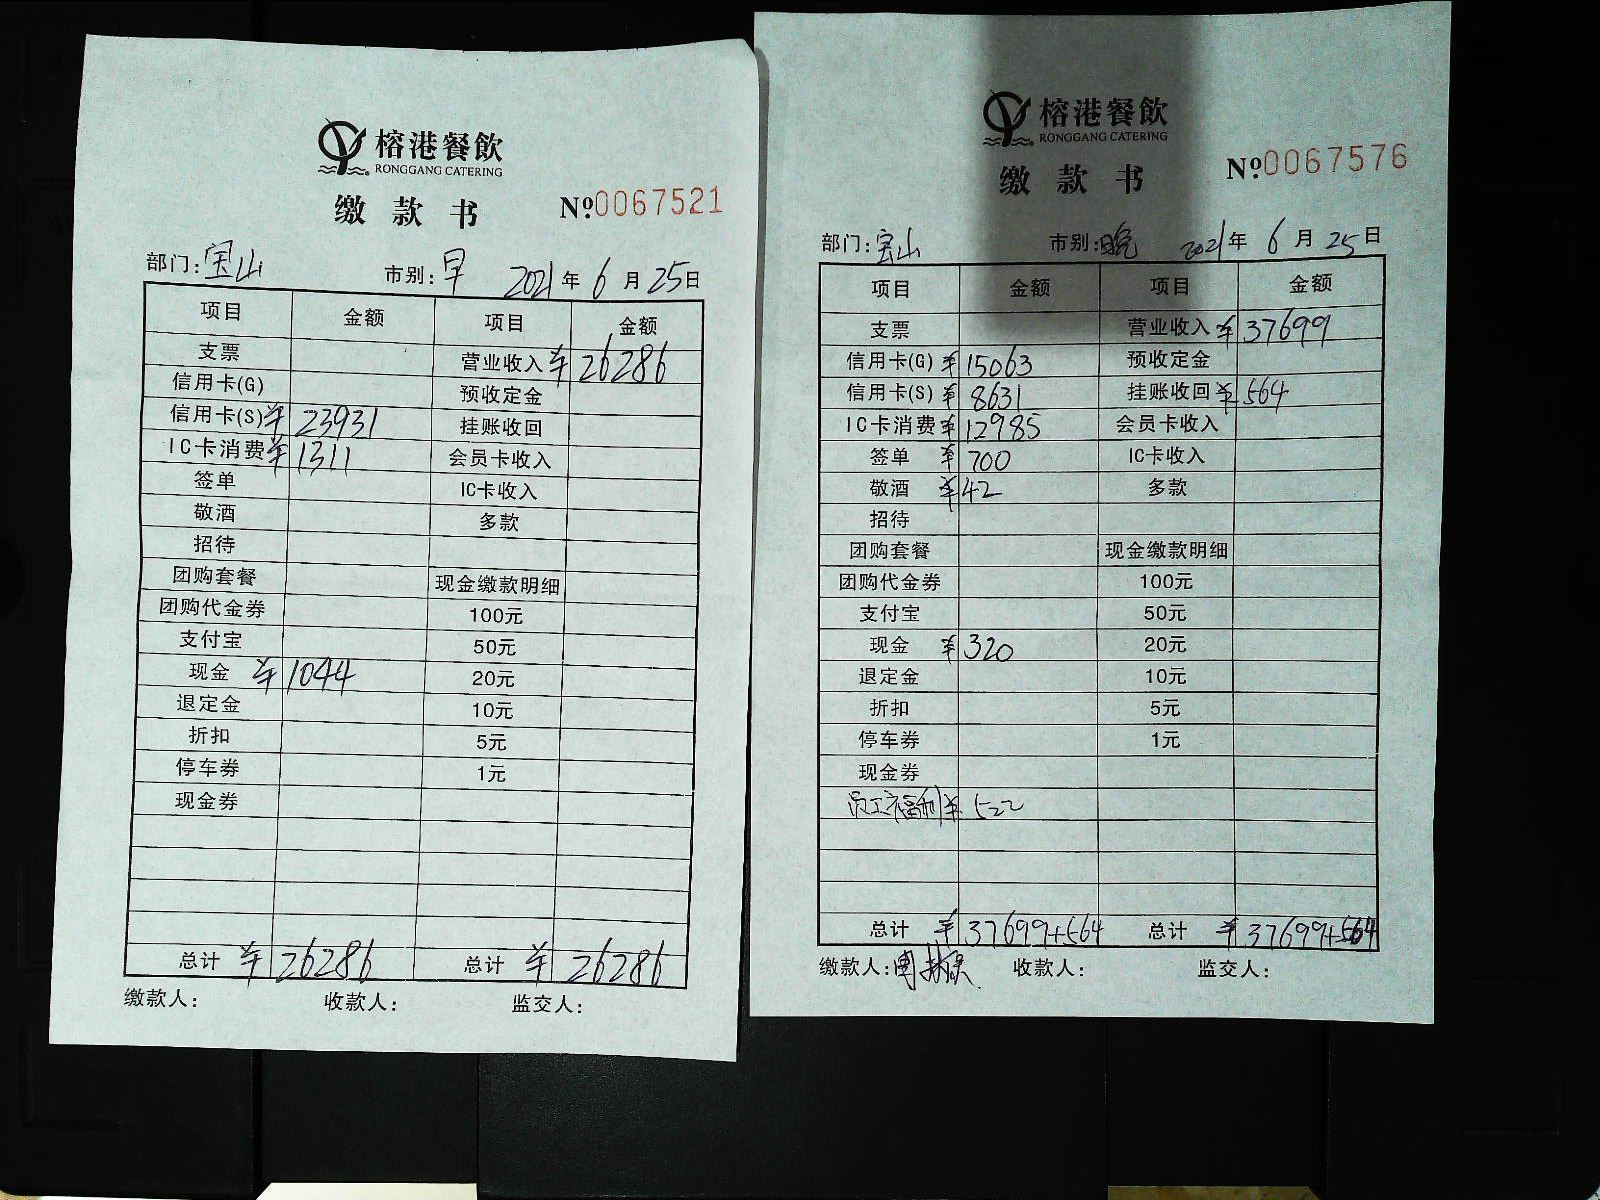 榕港餐飲
RONGGANG CATERING
缴款书 №0067521
部门:宝山 市别:早 2021年6月25日
项目 金额 项目 金额
支票 营业收入 ¥26286
信用卡(G) 预收定金
信用卡(S) ¥23931 挂账收回
IC卡消费 ¥1311 会员卡收入
签单 IC卡收入
敬酒 多款
招待
团购套餐 现金缴款明细
团购代金券 100元
支付宝 50元
现金 ¥1044 20元
退定金 10元
折扣 5元
停车券 1元
现金券
总计 ¥26286 总计 ¥26286
缴款人: 收款人: 监交人:
榕港餐飲
RONGGANG CATERING
缴款书 №0067576
部门:宝山 市别:晚 2021年6月25日
项目 金额 项目 金额
支票 营业收入 ¥37699
信用卡(G) ¥15063 预收定金
信用卡(S) ¥8631 挂账收回 ¥564
IC卡消费 ¥12985 会员卡收入
签单 ¥700 IC卡收入
敬酒 ¥42 多款
招待
团购套餐 现金缴款明细
团购代金券 100元
支付宝 50元
现金 ¥320 20元
退定金 10元
折扣 5元
停车券 1元
现金券
员工福利 ¥522
总计 ¥37699+564 总计 ¥37699+564
缴款人: 收款人: 监交人: